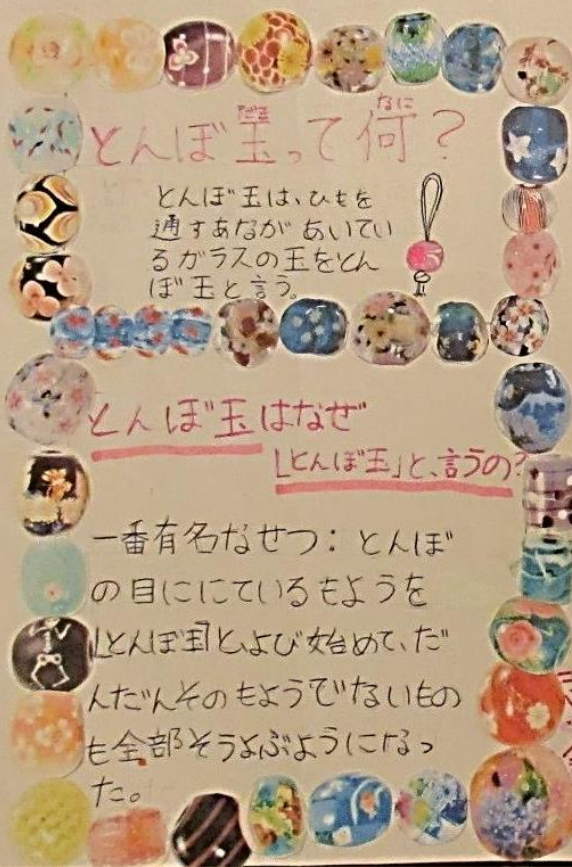 とんぼ玉って何？
だま
なに
とんぼ玉は、ひもを
通すあながあいてい
るガラスの玉をとん
ぼ玉と言う。
とんぼ玉はなぜ
「とんぼ玉」と、言うの？
一番有名なせつ：とんぼ
の目ににているもようを
「とんぼ玉」とよび始めて、だ
んだんそのもようでないもの
も全部そうよぶようになっ
た。